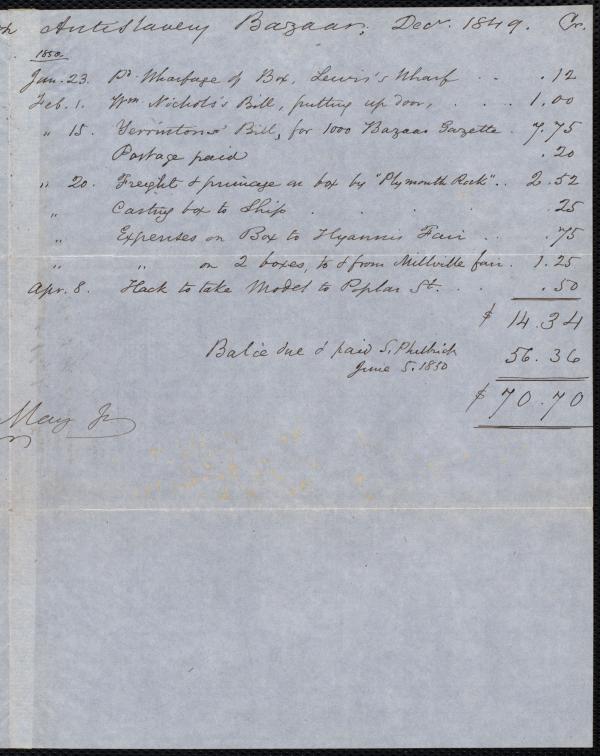 Antislavery Bazaar, Decr. 1849. Cr.
1850.
Jan. 23. Pd. Wharfage of Box, Lewis's Wharf . . .12
Feb. 1. Wm. Nichols's Bill, putting up door, . . . . 1.00
" 15. Yerrinton's Bill, for 1000 Bazaar Gazette . 7.75
Postage paid .20
" 20. Freight & primage on box by "Plymouth Rock" . . 2.52
" Carting box to Ship . . . . . .25
" Expenses on Box to Hyannis Fair . . .75
" " on 2 boxes, to & from Millville fair . 1.25
Apr. 8. Hack to take Model to Poplar St. . . .50
$ 14.34
Balce due & paid S. Philbrick 56.36
June 5. 1850
$ 70.70
May Jr